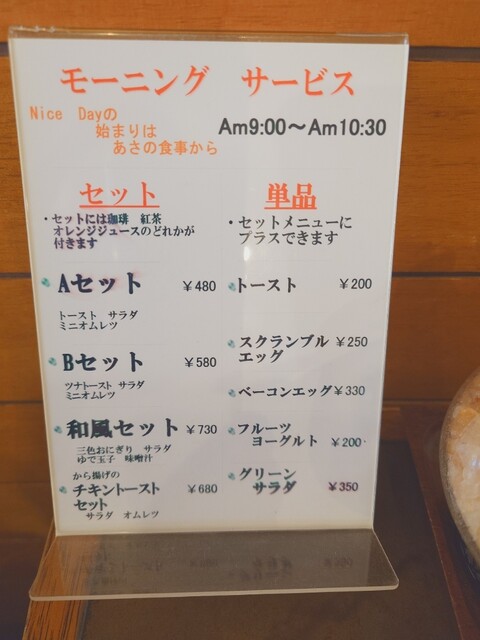 モーニング サービス
Nice Dayの
始まりは
あさの食事から
Am9:00～Am10:30
セット
・セットには珈琲 紅茶
オレンジジュースのどれかが
付きます
Aセット ￥480
トースト サラダ
ミニオムレツ
Bセット ￥580
ツナトースト サラダ
ミニオムレツ
和風セット ￥730
三色おにぎり サラダ
ゆで玉子 味噌汁
から揚げの
チキントースト ￥680
セット
サラダ オムレツ
単品
・セットメニューに
プラスできます
トースト ￥200
スクランブル ￥250
エッグ
ベーコンエッグ ￥330
フルーツ
ヨーグルト ￥200
グリーン
サラダ ￥350